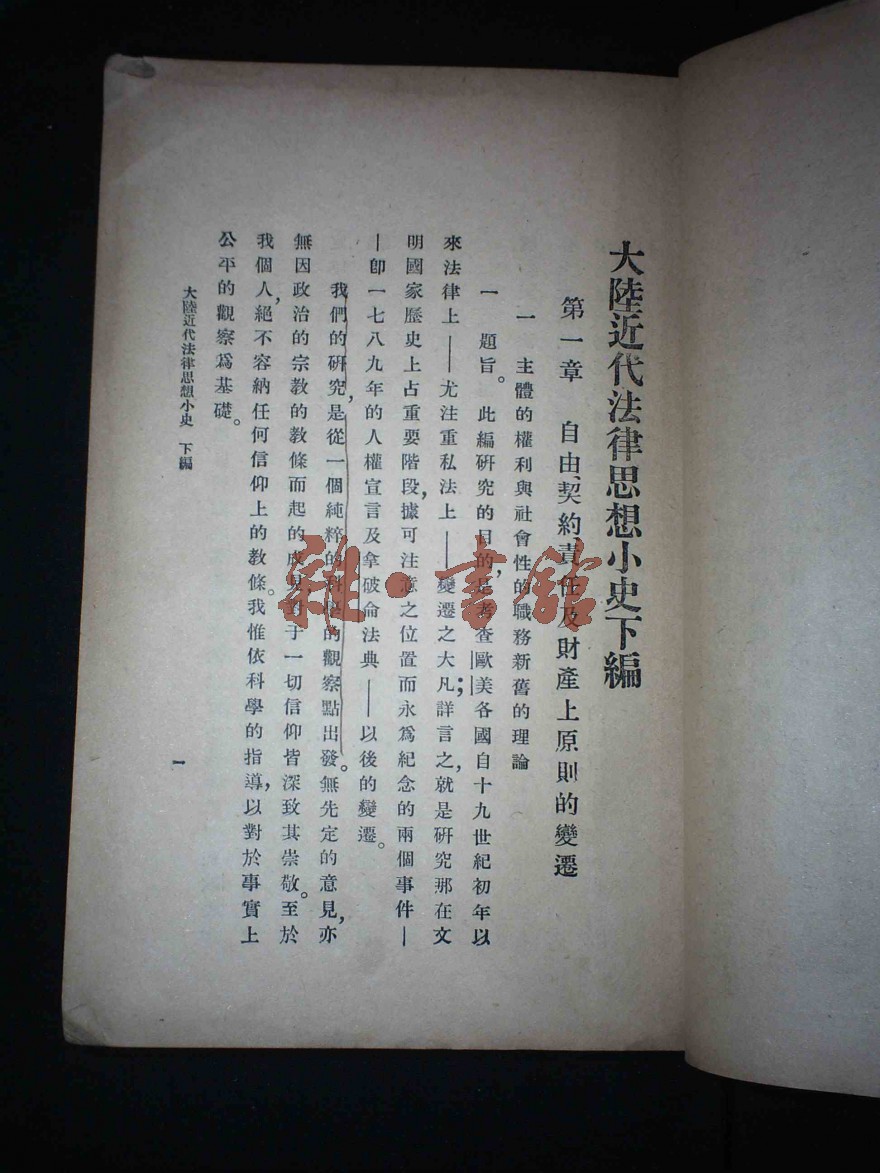 大陸近代法律思想小史下編
第一章 自由、契約責任及財產上原則的變遷
一 主體的權利與社會性的職務新舊的理論
一 題旨。 此編研究的目的,是考查歐美各國自十九世紀初年以
來法律上——尤注重私法上——變遷之大凡;詳言之,就是研究那在文
明國家歷史上占重要階段,據可注意之位置而永爲紀念的兩個事件—
—卽一七八九年的人權宣言及拿破侖法典——以後的變遷。
我們的研究,是從一個純粹的科學的觀察點出發。無先定的意見,亦
無因政治的宗教的教條而起的成見對于一切信仰皆深致其崇敬。至於
我個人,絕不容納任何信仰上的教條。我惟依科學的指導,以對於事實上
公平的觀察爲基礎。
大陸近代法律思想小史 下編
一
雜·書館